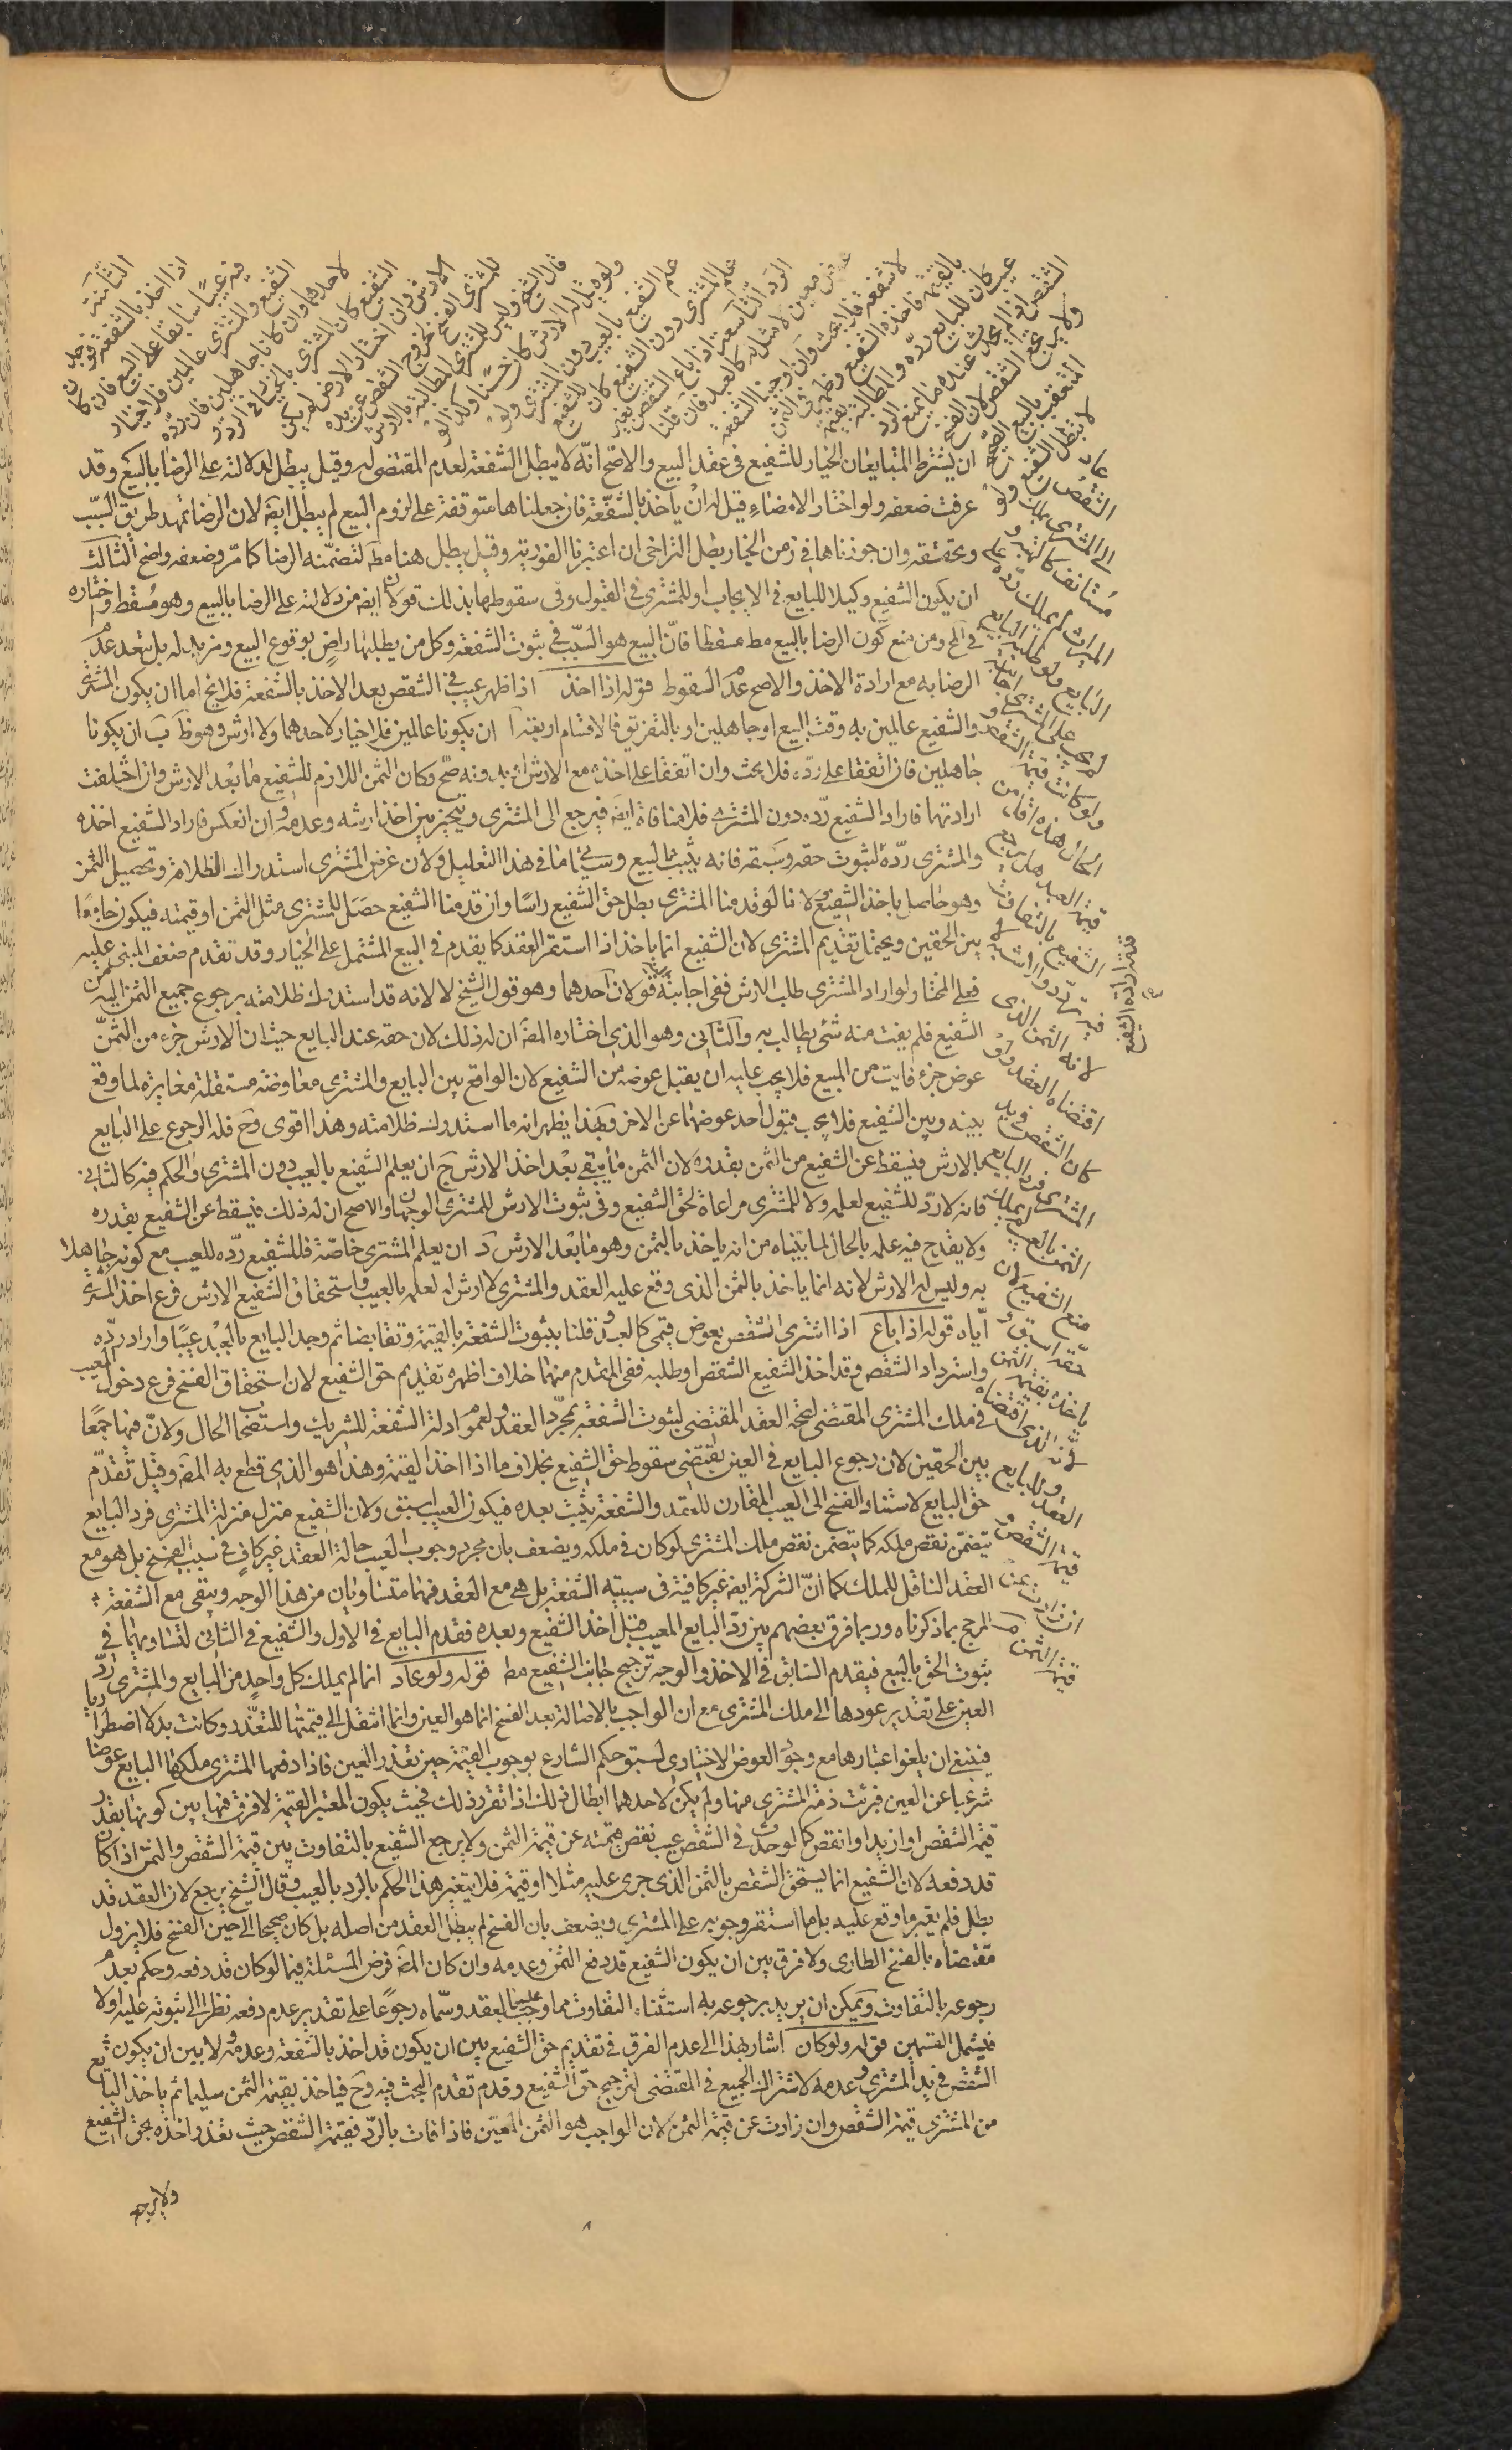 الثامنة
اذا اخذ بالشفعة فوجد
فيه عيبًا سابقا على البيع فان كان
الشفيع والمشتري عالمين فلا خيار
لاحدهما وان كانا جاهلين فان ردّه
الشفيع كان المشتري بالخيار في الرد و
الارش وان اختار الاخذ لم يكن
للمشتري الفسخ لخروج الشقص عن يده
قال الشيخ وليس للمشتري المطالبة بالارش
ولو قيل له الارش كان حسنًا وكذا لو
علم الشفيع بالعيب دون المشتري ولو
علم المشتري دون الشفيع كان للشفيع
الرد التاسعة اذا باع الشقص بعوض
معين لا مثل له كالعبد فان قلنا
لا شفعة فلا بحث وان اوجبنا الشفعة
بالقيمة فاخذه الشفيع وظهر في الثمن
عيب كان للبايع ردّه والمطالبة بقيمة
الشقص اذا لم يحدث عنده ما يمنع الرد
ولا يرتجع الشقص لان الفسخ
المتعقب للبيع الصحيح
لا يبطل الشفعة ولو عاد
الشقص الى المشتري بملك
مستانف كالهبة و
الميراث لم يملك ردّه على
البايع ولو طلبه البايع
لم يجب على المشتري اجابته
ولو كانت قيمة الشقص و
الحال هذه اقل من
قيمة العبد هل يرجع
الشفيع بالتفاوت
فيه تردّد والاشبه لا
لانه الثمن الذي
اقتضاه العقد ولو
كان الشقص في يد
المشتري فرد البايع
الثمن بالعيب لم يملك
منع الشفيع لان
حقه اسبق و
ياخذه بقيمة الثمن
لانه الذي اقتضاه
العقد وللبايع
قيمة الشقص و
ان زادت عن
قيمة الثمن
ان يشترط المتبايعان الخيار للشفيع في عقد البيع والاصح انّه لا يبطل الشفعة لعدم المقتضى له وقيل يبطل لدلالته على الرضا بالبيع وقد
عرفت ضعفه ولو اختار الامضاء قيل له ان ياخذ بالشفعة فان جعلناها متوقفة على لزوم البيع لم يبطل ايضا لان الرضا تمهيد طريق السّبب
وتحققه وان جوزناها في زمن الخيار بطل التراخي ان اعتبرنا الفورية وقيل يبطل هنا مط لتضمّنه الرضا كما مرّ وضعفه واضح الثالث
ان يكون الشفيع وكيلا للبايع في الايجاب او للمشتري في القبول وفي سقوطها بذلك قولان ايضا من دلالته على الرضا بالبيع وهو مسقط واختاره
في لح ومن منع كون الرضا بالبيع مط مسقطا فانّ البيع هو السّبب في ثبوت الشفعة وكل من يطلبها راضٍ بوقوع البيع ومريد له بل يتعد عدم
الرضا به مع ارادة الاخذ والاصح عدم السقوط قوله اذا اخذ اذا ظهر عيب في الشقص بعد الاخذ بالشفعة فلا يخ اما ان يكون المشتري
والشفيع عالمين به وقت البيع او جاهلين او بالتفريق فالاقسام اربعة آ ان يكونا عالمين فلا خيار لاحدهما ولا ارش وهو ظ ب ان يكونا
جاهلين فان اتفقا على ردّه فلا بحث وان اتفقا على اخذه مع الارش او بدونه صحّ وكان الثمن اللازم للشفيع ما بعد الارش وان اختلفت
ارادتهما فاراد الشفيع ردّه دون المشتري فلا منافاة ايضا فيرجع الى المشتري ويتخير بين اخذ ارشه وعدمه وان انعكس فاراد الشفيع اخذه
والمشتري ردّه لثبوت حقه وسبقه فانه يثبت بالبيع وسيأتي ما في هذا التعليل ولان غرض المشتري استدراك الظلامة وتحصيل الثمن
وهو حاصل باخذ الشفيع ولانا لو قدمنا المشتري بطل حق الشفيع راسًا وان قدمنا الشفيع حصل للمشتري مثل الثمن او قيمته فيكون جامعًا
بين الحقين ويحتمل تقديم المشتري لان الشفيع انما ياخذ اذا استقر العقد كما يقدم في البيع المشتمل على الخيار وقد تقدم ضعف المبنى عليه
فعلى المختار لو اراد المشتري طلب الارش ففي اجابته قولان احدهما وهو قول الشيخ لا لانه قد استدرك ظلامته برجوع جميع الثمن اليه من
الشفيع فلم يفت منه شئ يطالب به والثاني وهو الذي اختاره المصنف ان له ذلك لان حقه عند البايع حيث ان الارش جزء من الثمن
عوض جزء فايت من المبيع فلا يجب عليه ان يقبل عوضه من الشفيع لان الواقع بين البايع والمشتري معاوضة مستقلة مغايرة لما وقع
بينه وبين الشفيع فلا يجب قبول احد عوضهما عن الاخر وبهذا يظهر انه ما استدرك ظلامته وهذا اقوى وح فله الرجوع على البايع
بالارش فيسقط عن الشفيع من الثمن بقدره لان الثمن ما يبقى بعد اخذ الارش ج ان يعلم الشفيع بالعيب دون المشتري والحكم فيه كالثاني
فانه لا ردّ للشفيع لعلمه ولا للمشتري مراعاة لحق الشفيع وفي ثبوت الارش للمشتري الوجهان والاصح ان له ذلك فيسقط عن الشفيع بقدره
ولا يقدح فيه علمه بالحال لما بيّناه من انه ياخذ بالثمن وهو ما بعد الارش د ان يعلم المشتري خاصّة فللشفيع ردّه للعيب مع كونه جاهلا
به وليس له الارش لانه انما ياخذ بالثمن الذي وقع عليه العقد والمشتري لا ارش له لعلمه بالعيب واستحقاق الشفيع الارش فرع اخذ المشتري
ايّاه قوله اذا باع اذا اشترى الشقص بعوض قيمي كالعبد وقلنا بثبوت الشفعة بالقيمة وتقابضا ثم وجد البايع بالعبد عيبًا واراد ردّه
واسترداد الشقص وقد اخذ الشفيع الشقص او طلبه ففي المتقدم منهما خلاف اظهره تقديم حق الشفيع لان استحقاق الفسخ فرع دخول المعيب
في ملك المشتري المقتضي لصحة العقد المقتضي لثبوت الشفعة بمجرّد العقد ولعموم ادلة الشفعة للشريك واستصحاب الحال ولانّ فيها جمعًا
بين الحقين لان رجوع البايع في العين يقتضي سقوط حق الشفيع بخلاف ما اذا اخذ القيمة وهذا هو الذي قطع به المصنف وقيل تقدّم
حق البايع لاستناد الفسخ الى العيب المقارن للعقد والشفعة يثبت بعده فيكون العيب اسبق ولان الشفيع منزل منزلة المشتري فرد البايع
يتضمّن نقص ملكه كما يتضمن نقص ملك المشتري لو كان في ملكه ويضعف بان مجرد وجوب العيب حالة العقد غير كافٍ في سبب الفسخ بل هو مع
العقد الناقل للملك كما انّ الشركة ايضا غير كافية في سببية الشفعة بل هي مع العقد فهما متساويان من هذا الوجه ويبقى مع الشفعة
المرجح بما ذكرناه وربما فرق بعضهم بين ردّ البايع المعيب قبل اخذ الشفيع وبعده فقدم البايع في الاول والشفيع في الثاني لتساويهما في
ثبوت الحق بالبيع فيقدم السابق في الاخذ والوجه ترجيح جانب الشفيع مط قوله ولو عاد انما لم يملك كل واحدٍ من البايع والمشتري ردّ
العين على تقدير عودها الى ملك المشتري مع ان الواجب بالاصالة بعد الفسخ انما هو العين وانما انتقل الى قيمتها للتعذّر وكانت بدلا اضطراريا
فينبغي ان يلغو اعتبارها مع وجود العوض الاختياري لسبق حكم الشارع بوجوب القيمة حين تعذر العين فاذا دفعها المشتري ملكها البايع عوضا
شرعيا عن العين فبرئت ذمّة المشتري منها ولم يكن لاحدهما ابطال ذلك اذا تقرر ذلك فحيث يكون المعتبر القيمة لا فرق فيها بين كونها بقدر
قيمة الشقص او ازيد او انقص كما لو حدث في الشقص عيب نقص قيمته عن قيمة الثمن ولا يرجع الشفيع بالتفاوت بين قيمة الشقص والثمن اذا كان
قد دفعه لان الشفيع انما يستحق الشقص بالثمن الذي جرى عليه مثلا او قيمة فلا يتغير هذا الحكم بالرد بالعيب وقال الشيخ يرجع لان العقد قد
بطل فلم يعتبر ما وقع عليه بل ما استقر وجوبه على المشتري ويضعف بان الفسخ لم يبطل العقد من اصله بل كان صحيحا الى حين الفسخ فلا يزول
مقتضاه بالفسخ الطارى ولا فرق بين ان يكون الشفيع قد دفع الثمن وعدمه وان كان المصنف فرض المسئلة فيما لو كان قد دفعه وحكم بعدم
رجوعه بالتفاوت ويمكن ان يريد برجوعه به استثناء التفاوت مما وجب علينا بالعقد وسمّاه رجوعًا على تقدير عدم دفعه نظرا الى ثبوته عليه اولا
فيشمل القسمين قوله ولو كان اشار بهذا الى عدم الفرق في تقديم حق الشفيع بين ان يكون قد اخذ بالشفعة وعدمه ولا بين ان يكون
الشقص في يد المشتري وعدمه لاشتراك الجميع في المقتضى لترجيح حق الشفيع وقدم تقدم البحث فيه وح فياخذ بقيمة الثمن سليما ثم ياخذ البايع
من المشتري قيمة الشقص وان زادت عن قيمة الثمن لان الواجب هو الثمن المعين فاذا فات بالردّ فقيمة الشقص حيث تعذر اخذه بحق الشفيع
ولا يرجع